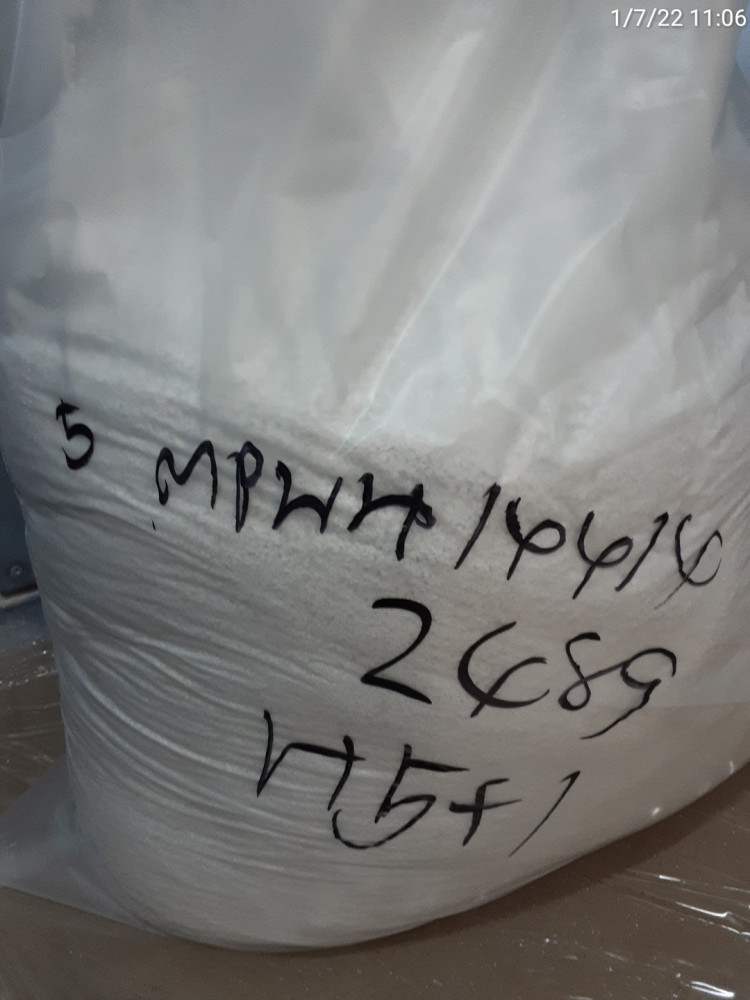 1/7/22 11:06
5 MPWH 14414
2489
H5+1